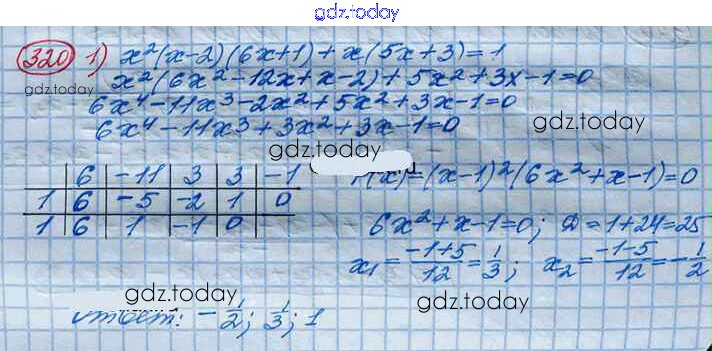 gdz.today
320 1) x²(x-2)(6x+1)+x(5x+3)=1
x²(6x²-12x+x-2)+5x²+3x-1=0
gdz.today
6x⁴-11x³-2x²+5x²+3x-1=0
6x⁴-11x³+3x²+3x-1=0
gdz.today
gdz.today
6 -11 3 3 -1
(x)=(x-1)²(6x²+x-1)=0
1 6 -5 -2 1 0
1 6 1 -1 0
6x²+x-1=0; D=1+24=25
x₁=(-1+5)/12=1/3; x₂=(-1-5)/12=-1/2
gdz.today
gdz.today
Ответ: -1/2; 1/3; 1